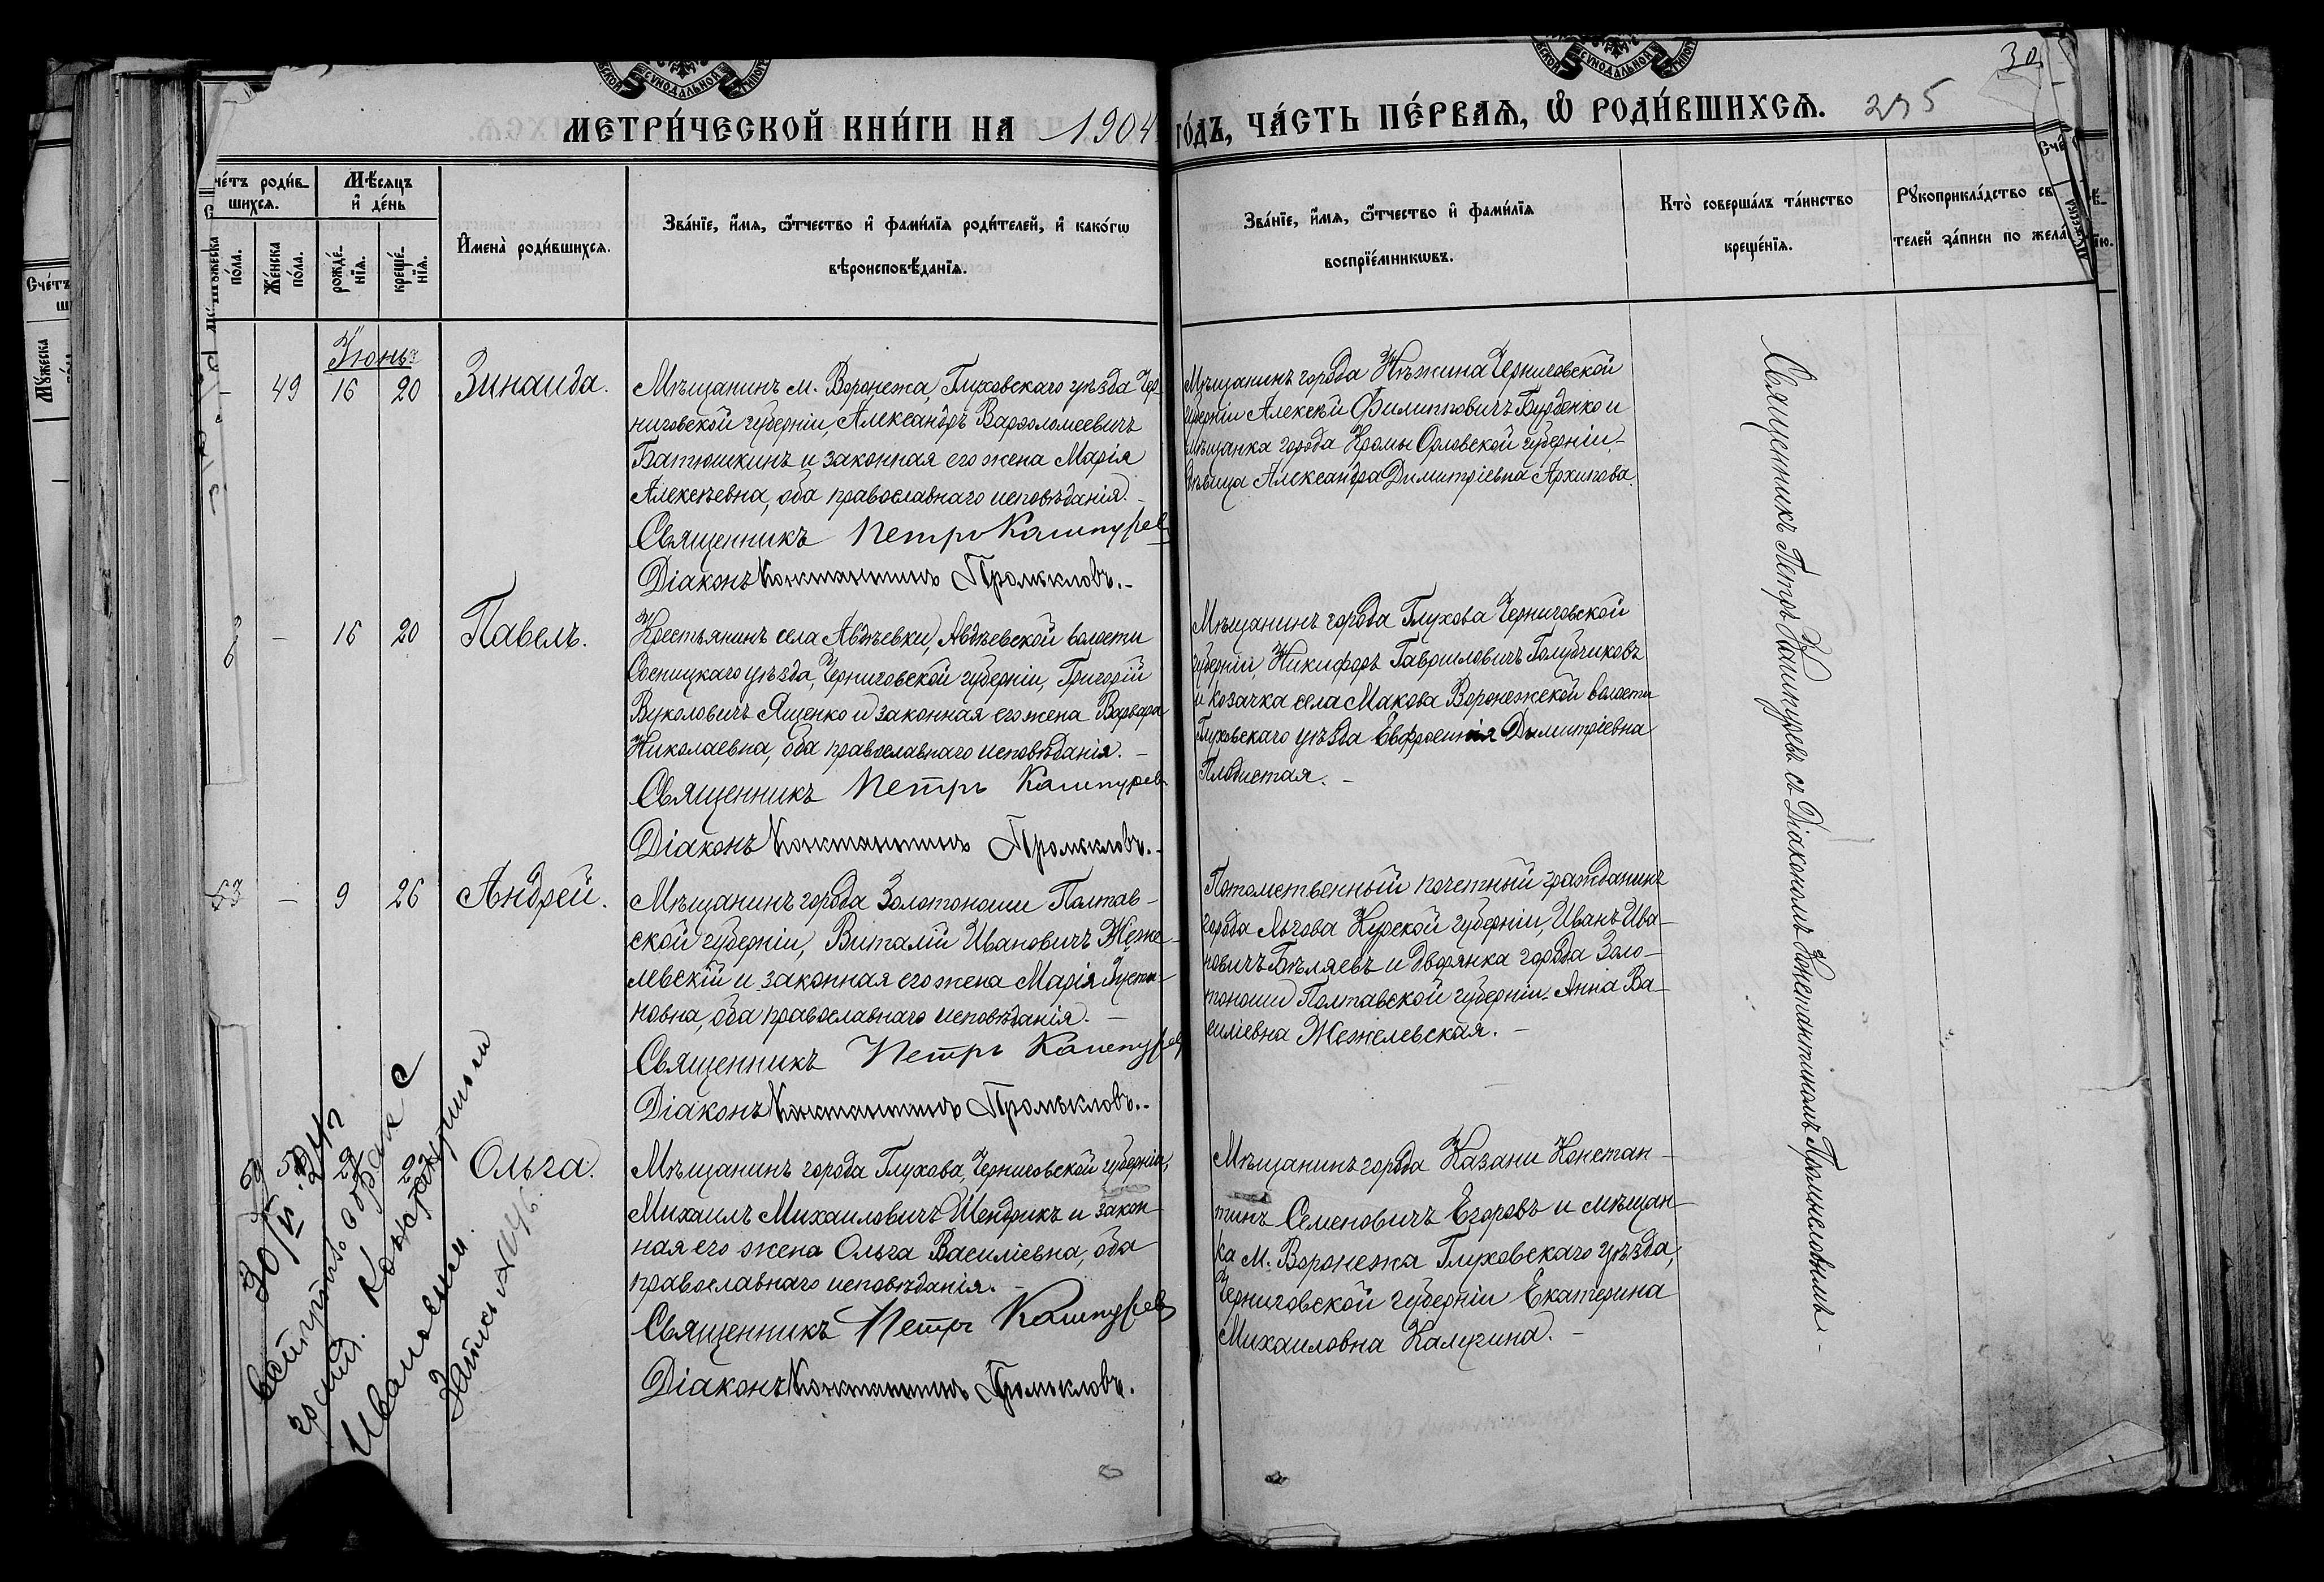 МЕТРИ́ЧЕСКОЙ КНИ́ГИ НА 1904 ГО́ДЪ, ЧА́СТЬ ПЕ́РВАЯ, Ѡ РОДИ́ВШИХСЯ. 295
30
че́тъ роди́в-
шихся.
Мѣ́сяцъ
и де́нь
Му́жеска
по́ла.
Же́нска
по́ла.
рожде́-
нїя.
креще́-
нїя.
Имена̀ роди́вшихся.
Зва́нїе, и́мя, ѻ҆́тчество и фами́лїя роди́телей, и како́гѡ
вѣроисповѣ́данїя.
Зва́нїе, и́мя, ѻ҆́тчество и фами́лїя
воспрїе́мникѡвъ.
Кто̀ соверша́лъ та́инство
креще́нїя.
Рꙋкоприкла́дство св
телей за́писи по жела́
Іюнь
49 16 20 Зинаида.
Мѣщанинъ м. Воронежа, Глуховскаго уѣзда Чер-
ниговской губерніи, Александръ Варѳоломеевичъ
Батюшкинъ и законная его жена Марія
Алексѣевна, оба православнаго исповѣданія.-
Священникъ Петръ Кашпуревъ
Діаконъ Константинъ Промысловъ.-
Мѣщанинъ города Нѣжина Черниговской
губерніи Алексѣй Филипповичъ Бурденко и
мѣщанка города Кромы Орловской губерніи-
дѣвица Александра Димитріевна Архипова.
- 16 20 Павелъ.
Крестьянинъ села Авдѣевки, Авдѣевской волости
Сосницкаго уѣзда, Черниговской губерніи, Григорій
Вуколовичъ Ященко и законная его жена Варвара
Николаевна, оба православнаго исповѣданія.-
Священникъ Петръ Кашпуревъ
Діаконъ Константинъ Промысловъ.-
Мѣщанинъ города Глухова Черниговской
губерніи, Никифоръ Гавриловичъ Голубчиковъ
и козачка села Макова Воронежской волости
Глуховскаго уѣзда Евфросинія Димитріевна
Плодистая.-
53 - 9 26 Андрей.
Мѣщанинъ города Золотоноши Полтав-
ской губерніи, Виталій Ивановичъ Жеже-
левскій и законная его жена Марія Іусти-
новна, оба православнаго исповѣданія.-
Священникъ Петръ Кашпуревъ
Діаконъ Константинъ Промысловъ.-
Потомственный почетный гражданинъ
города Льгова Курской губерніи, Иванъ Ива-
новичъ Бѣляевъ и дворянка города Золо-
тоноши Полтавской губерніи Анна Ва-
силіевна Жежелевская.-
Ольга.
Мѣщанинъ города Глухова, Черниговской губерніи,
Михаилъ Михаиловичъ Шендрикъ и закон-
ная его жена Ольга Василіевна, оба
православнаго исповѣданія.-
Священникъ Петръ Кашпуревъ
Діаконъ Константинъ Промысловъ.
Мѣщанинъ города Казани Констан-
тинъ Семеновичъ Егоровъ и мѣщан-
ка м. Воронежа Глуховскаго уѣзда,
Черниговской губерніи Екатерина
Михаиловна Калугина.-
Священникъ Петръ Кашпуревъ съ Діакономъ Константиномъ Промысловымъ.-
о браке с
гр-ном
Ивановичем.
Запись №